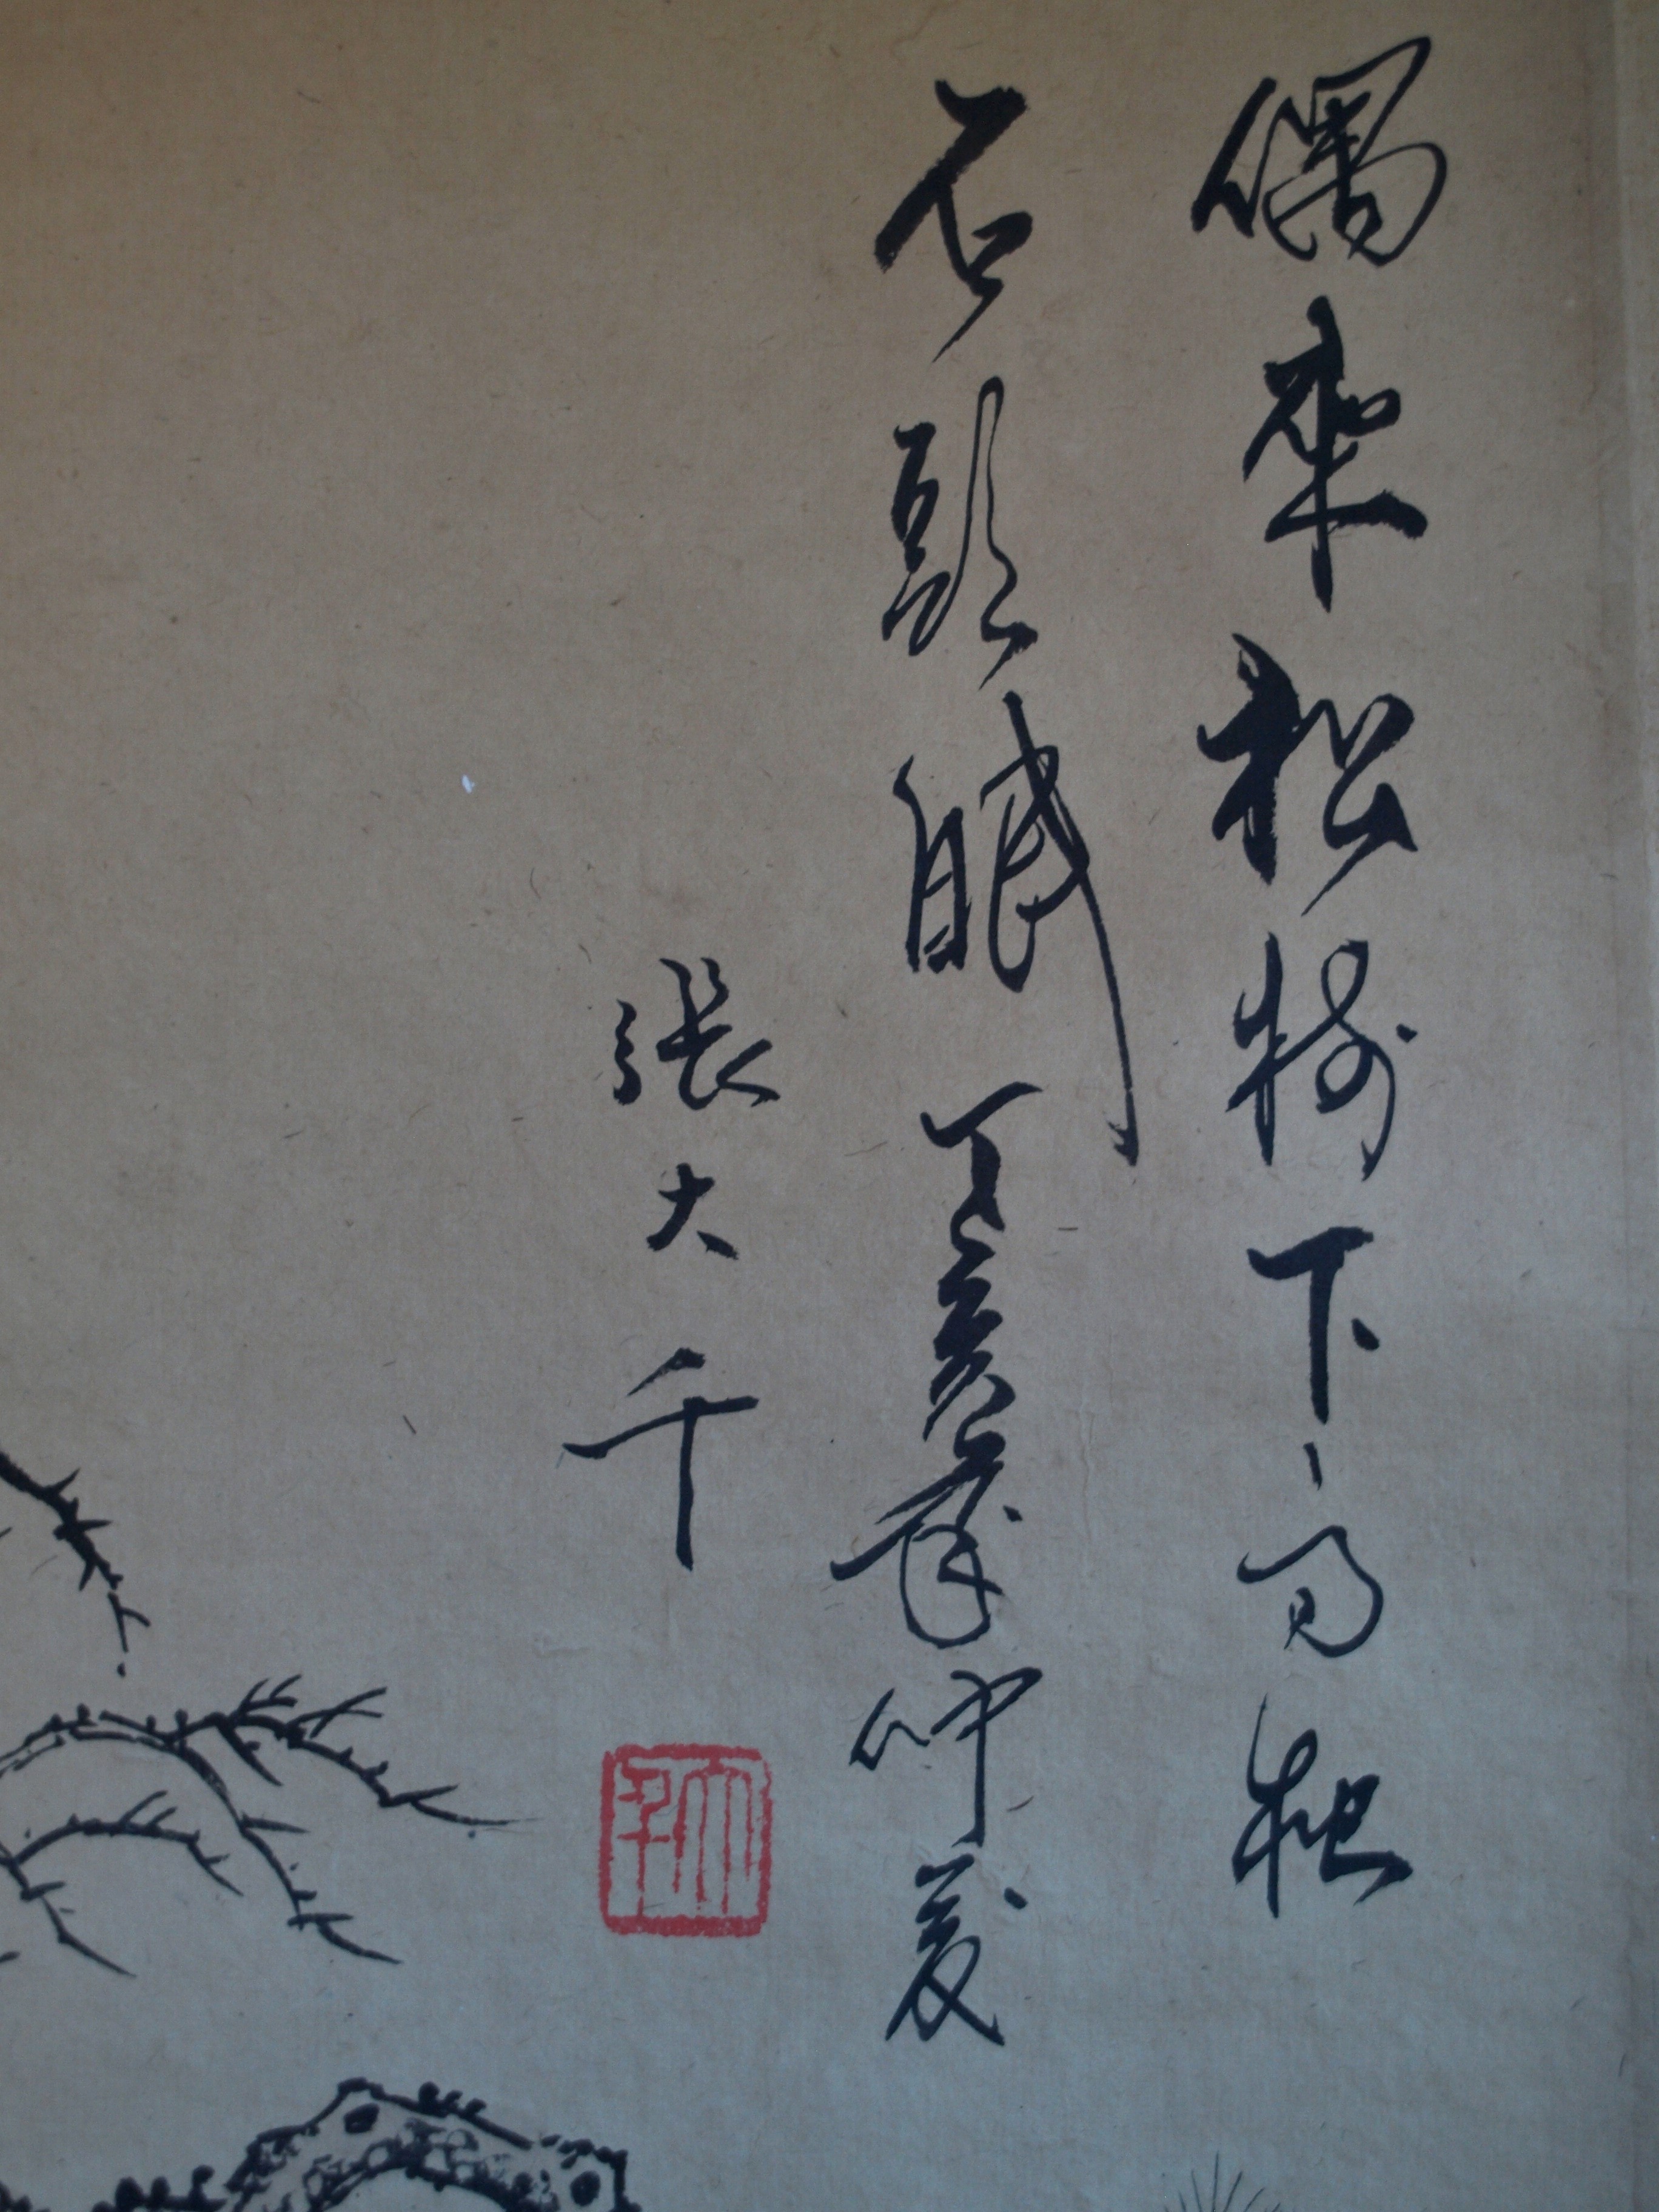 偶來松樹下高枕
石頭眠丁亥年仲夏
張大千
大千